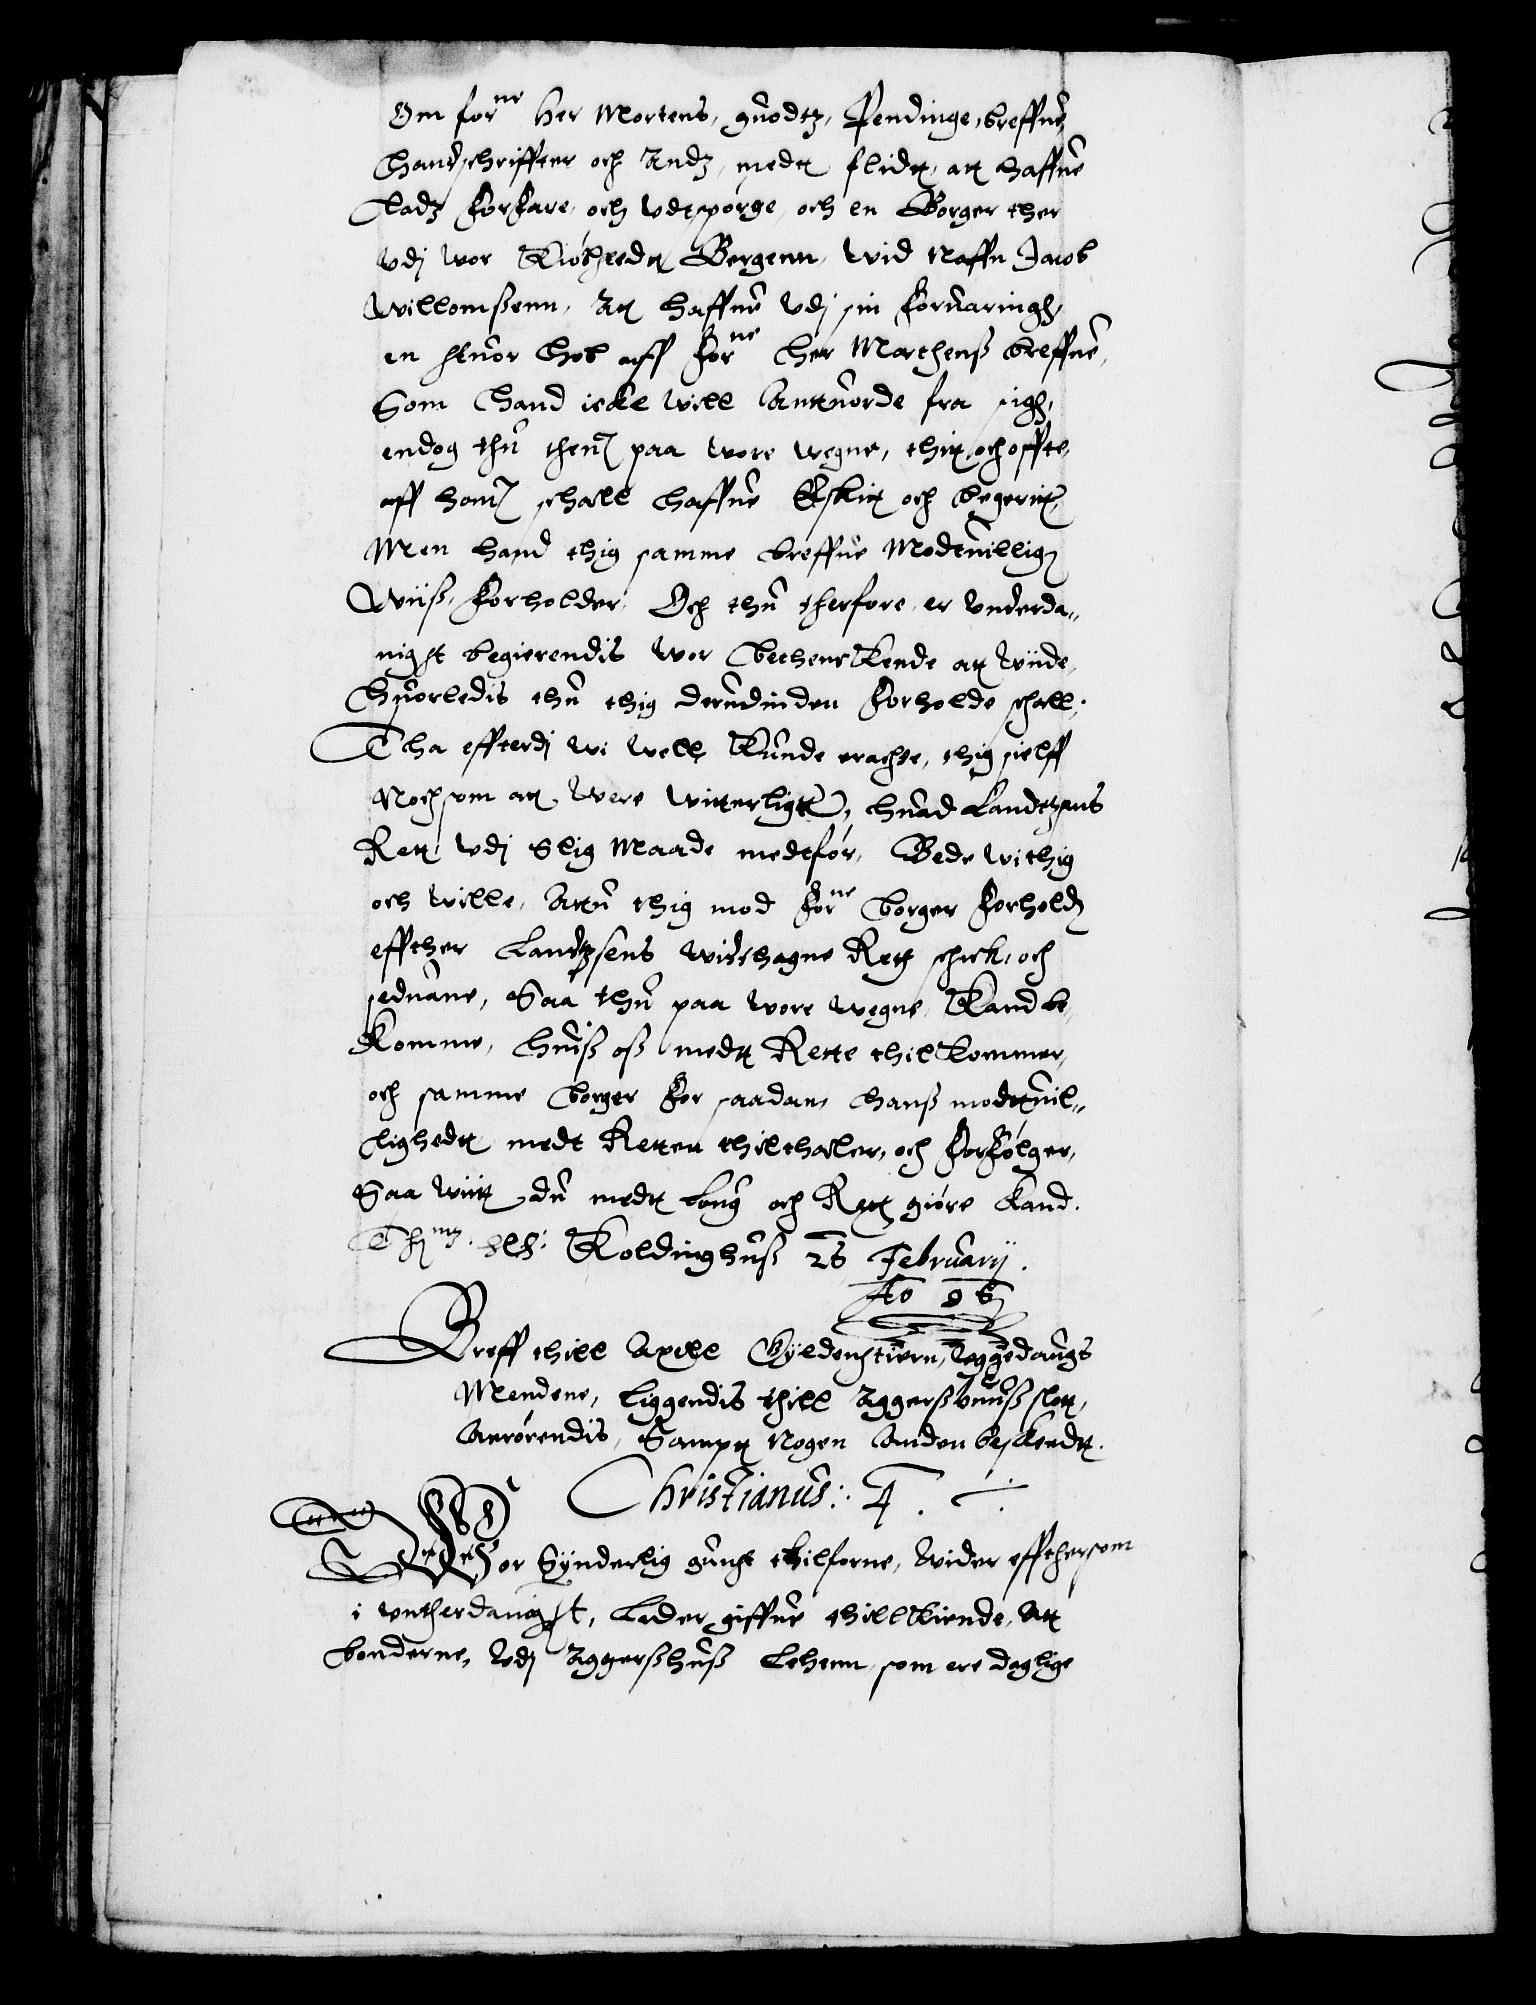 Om forne her Mortens, guodtz, Pendinge, breffue,
Handschriffter och Andz, medt flidt, att haffue
Ladz forfare och vdtspørge, och en Borger ther
vdj wor Kiøbstedt Bergenn, wid Naffn Jacob
Willomßenn, Att haffue vdj sin foruaringh,
en stuor hob aff forne her Morthenß breffue,
Som hand icke will Anttuorde fra sigh,
endog thu thenn paa wore wegne, thit och offte,
aff hannem schall haffue Eskitt och begeritt,
Men hand thig samme breffue Modtuillig
Wiiß, forholder, Och thu therfore er vnderda-
nigst begierendis wor bethenckende at wiide,
Huorledis thu thig derudinden forholde schall;
Tha effterdj wi well kunde erachte, thig sielff
Nochsom att were witterligtt, huad Landtzens
Rett vdj Slig Maade medtfør, Bede wi thig
och wille, Attu thig mod forne borger forholder
effther Landtzsens widthagne Rett schick, och
seduane, Saa thu paa wore wegne kand be-
komme, huiß oß medt Rette thilkommer,
och samme borger for saadan hanß modtuil-
lighedt medt Retten thilthaler, och forfølger,
Saa wiitt du medt Loug och Rett giøre kand.
Koldinghuß 26 Februarij.
Ao 96
Breff thill Axell Gyldenstiern, Leggedaugs
Mendene, liggendis thill Aggerßhuuß slott,
Anrørendis, Sampt Nogen Anden beskeedt.
Christianus: 4.
Wor Synderlig gunst thilforne, Wider effthersom
i vntherdanigst, Lader giffue thillkiende, Att
bønderne, vdj Aggerßhuß Lehenn som ere daglige